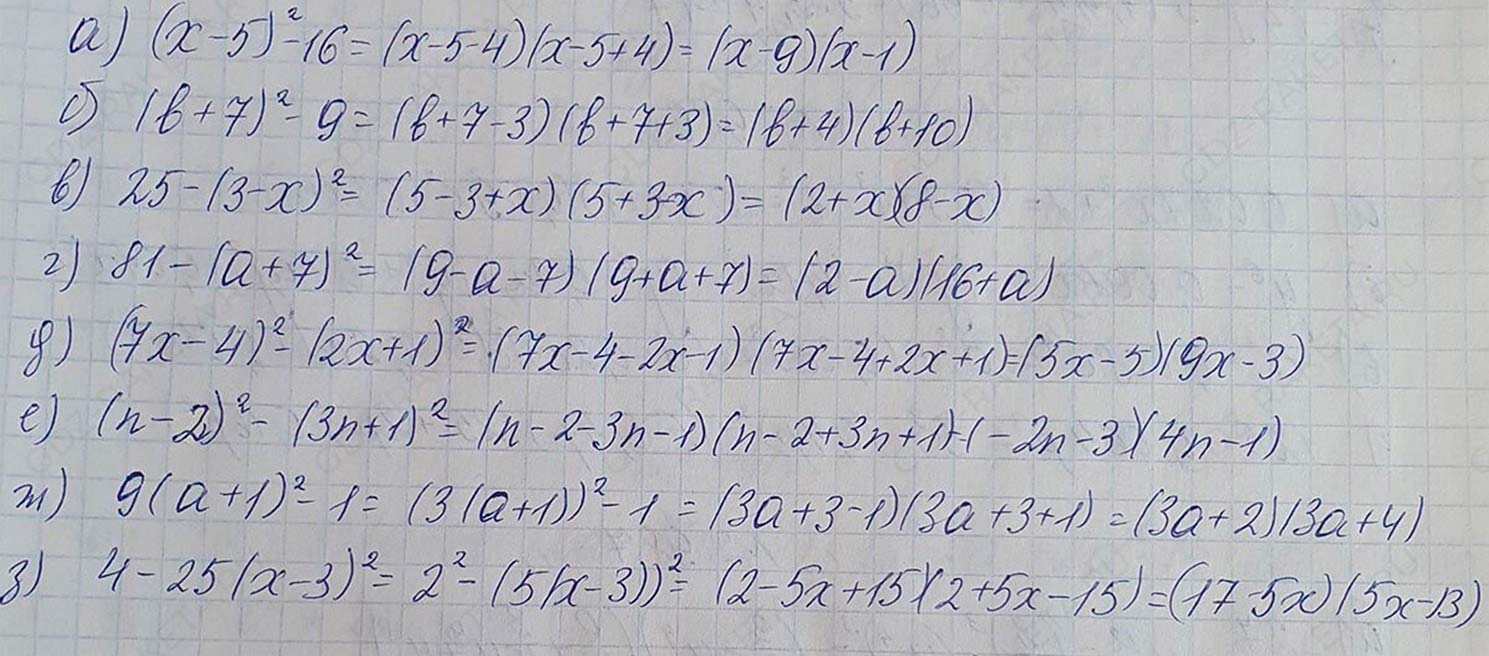 а) (x-5)²-16=(x-5-4)(x-5+4)=(x-9)(x-1)
б) (b+7)²-9=(b+7-3)(b+7+3)=(b+4)(b+10)
в) 25-(3-x)²=(5-3+x)(5+3-x)=(2+x)(8-x)
г) 81-(a+7)²=(9-a-7)(9+a+7)=(2-a)(16+a)
д) (7x-4)²-(2x+1)²=(7x-4-2x-1)(7x-4+2x+1)=(5x-5)(9x-3)
е) (n-2)²-(3n+1)²=(n-2-3n-1)(n-2+3n+1)=(-2n-3)(4n-1)
ж) 9(a+1)²-1=(3(a+1))²-1=(3a+3-1)(3a+3+1)=(3a+2)(3a+4)
з) 4-25(x-3)²=2²-(5(x-3))²=(2-5x+15)(2+5x-15)=(17-5x)(5x-13)